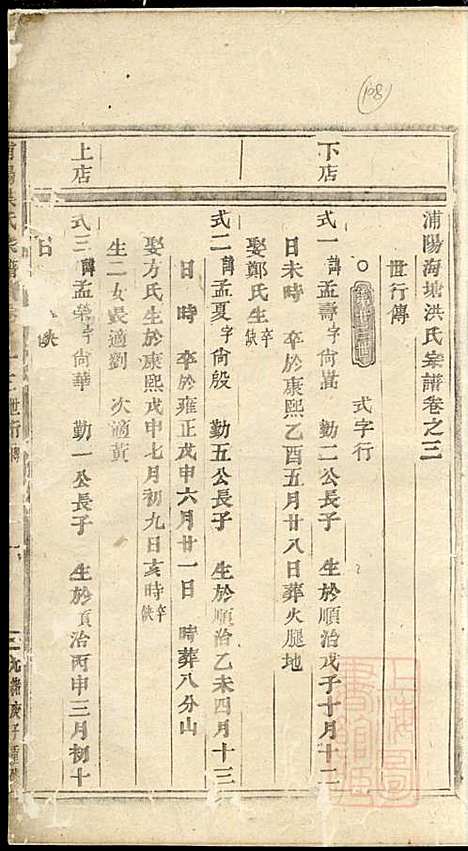 108
浦陽海塘洪氏宗譜卷之三
世行傳
○ 式字行
下店
式一 諱孟壽字尙嵩 勤二公長子 生於順治戊子十月十二
日未時 卒於康熙乙酉五月廿八日葬火腿地
娶鄭氏生卒缺
式二 諱孟夏字尙殷 勤五公長子 生於順治乙未四月十三
日 時 卒於雍正戊申六月廿一日 時葬八分山
娶方氏生於康熙戊申七月初九日亥時卒缺
生二女長適劉 次適黃
上店
式三 諱孟榮字尙華 勤一公長子 生於順治丙申三月初十
日 缺
世行傳